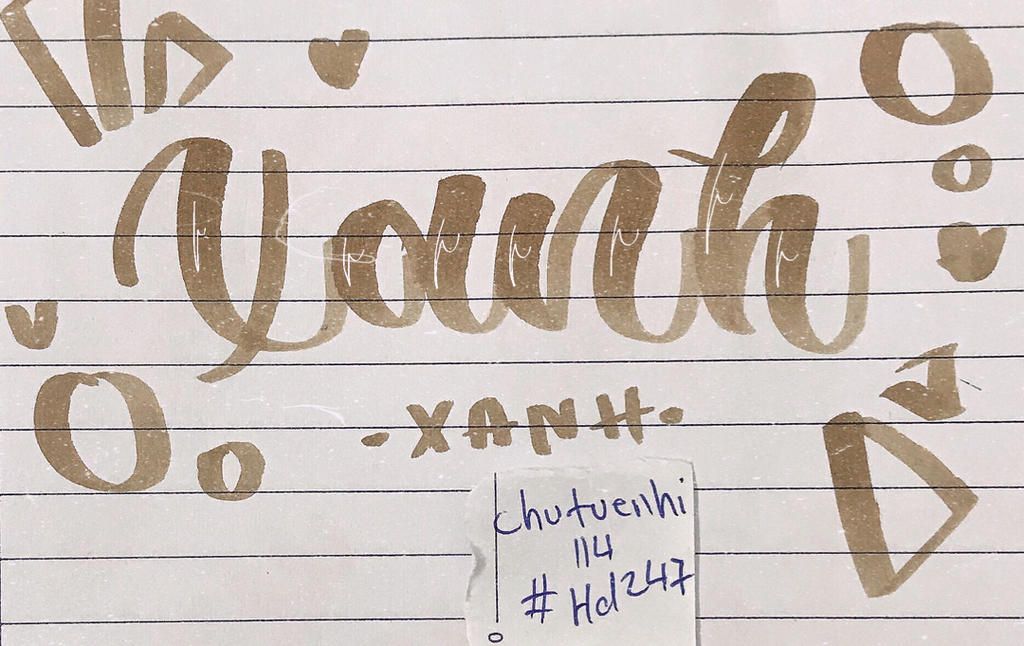 Xanh
·XANH·
chutuenhi
114
#Hd247